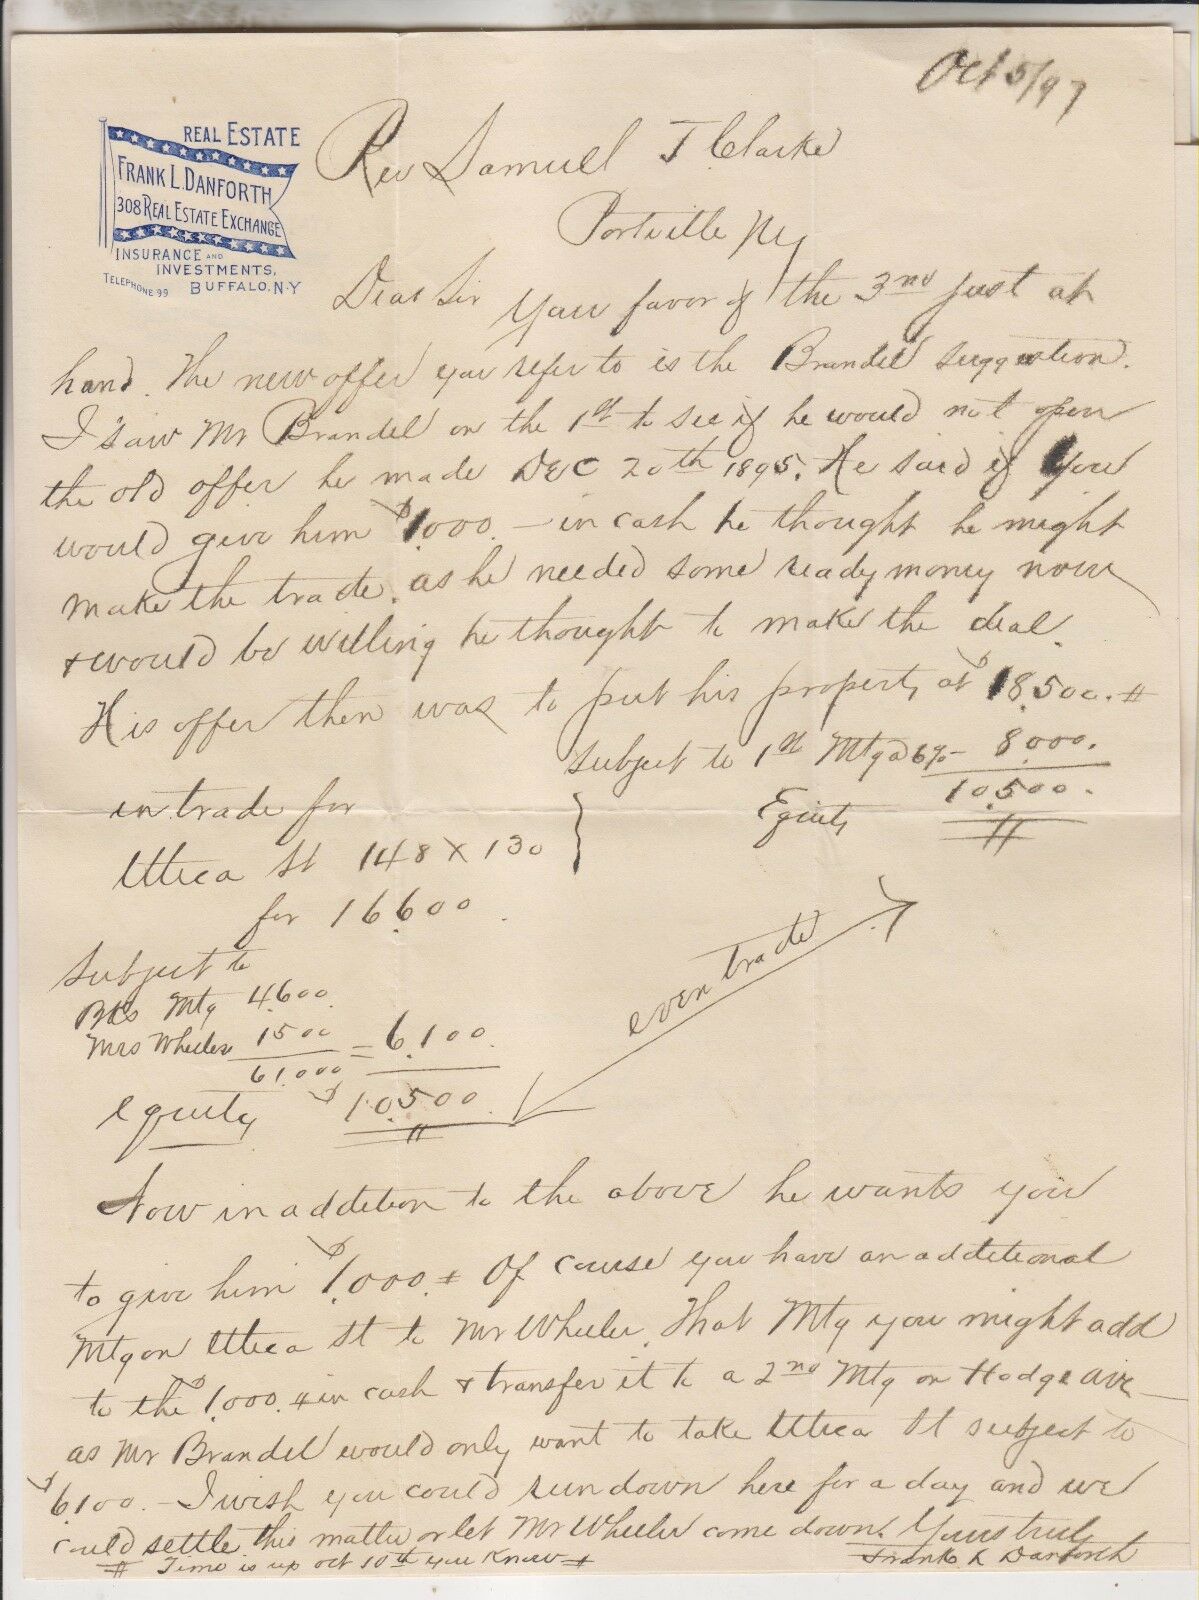 Oct 5/97
REAL ESTATE
FRANK L. DANFORTH
308 REAL ESTATE EXCHANGE
INSURANCE AND
INVESTMENTS,
TELEPHONE 99 BUFFALO, N.Y
Rev Samuel T Clarke
Portville Ny
Dear Sir Your favor of the 3rd just at
hand. The new offer you refer to is the Brandel suggestion.
I saw Mr Brandel on the 1st to see if he would not open
the old offer he made DEC 20th 1895. He said if you
would give him $1000. - in cash he thought he might
make the trade. as he needed some ready money now
+ would be willing he thought to make the deal.
His offer then was to put his property at $18,500. #
subject to 1st Mtg @ 6% - 8.000.
10.500.
Equity
in trade for
Utica St 148 X 130 }
for 16600.
Subject to
Mtg 4.600.
Mrs Wheeler 1500 = 6.100.
61.000
equity $10.500.
even trade
Now in addition to the above he wants you
to give him $1.000. # Of course you have an additional
Mtg on Utica St to Mr Wheeler. That Mtg you might add
to the $1.000. # in cash + transfer it to a 2nd Mtg on Hodge ave -
as Mr Brandel would only want to take Utica St subject to
$6100. - I wish you could run down here for a day and we
could settle this matter or let Mr Wheeler come down. Yours truly
# Time is up oct 10th you know # Frank L Danforth